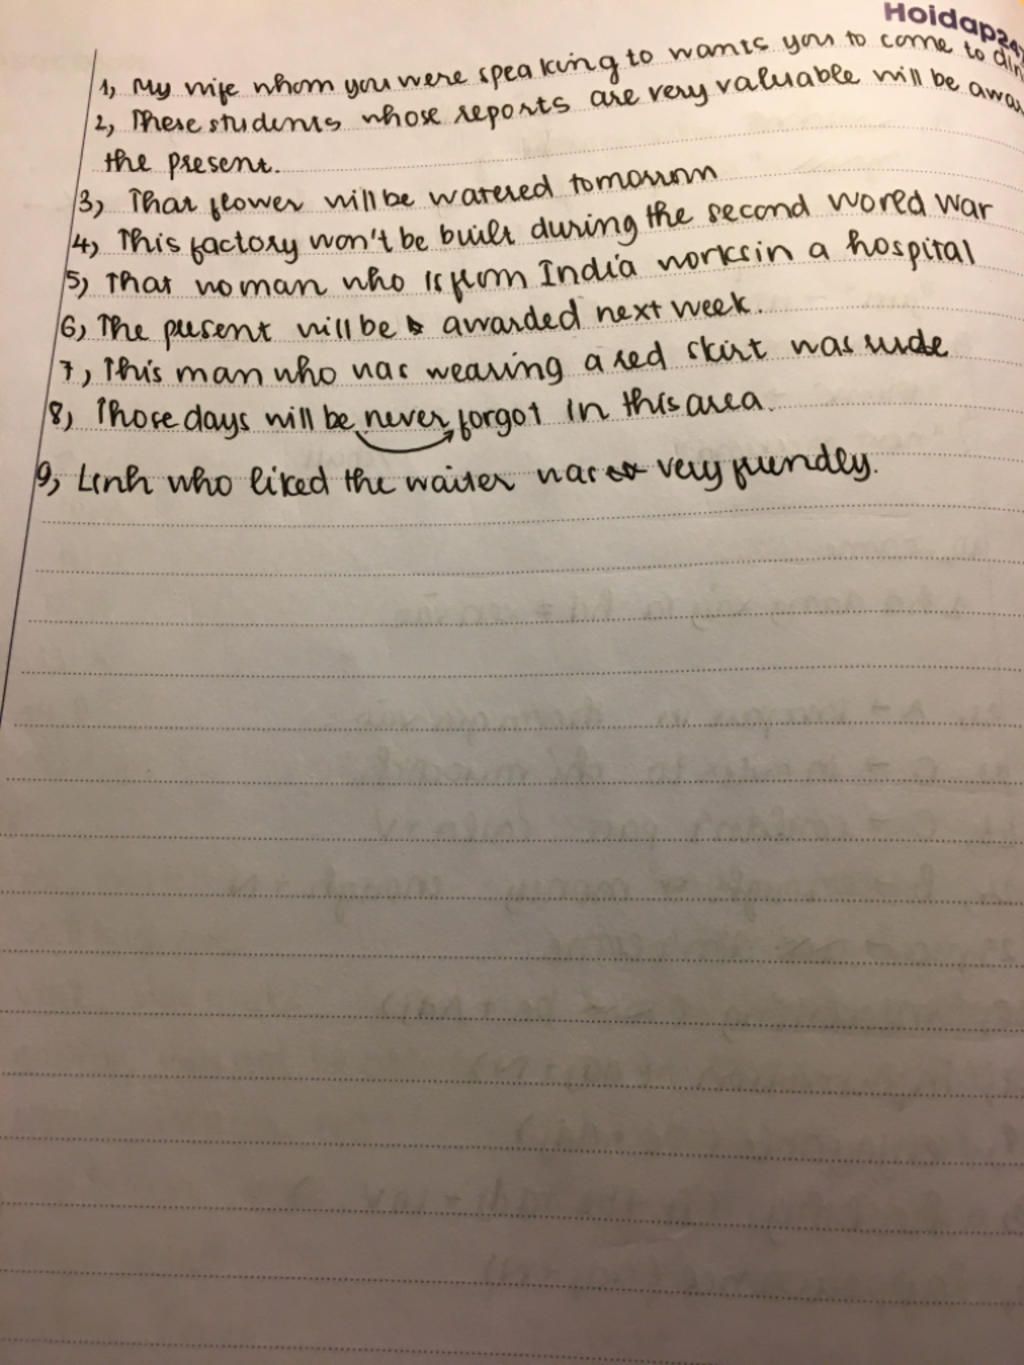 Hoidap247
1, My wife whom you were speaking to wants you to come to din
2, These students whose reports are very valuable will be awar
the present.
3, That flower will be watered tomorrow
4, This factory won't be built during the second world war
5, That woman who is from India works in a hospital
6, The present will be awarded next week.
7, This man who was wearing a red skirt was rude
8, Those days will be never forgot in this area.
9, Linh who liked the waiter was very friendly.